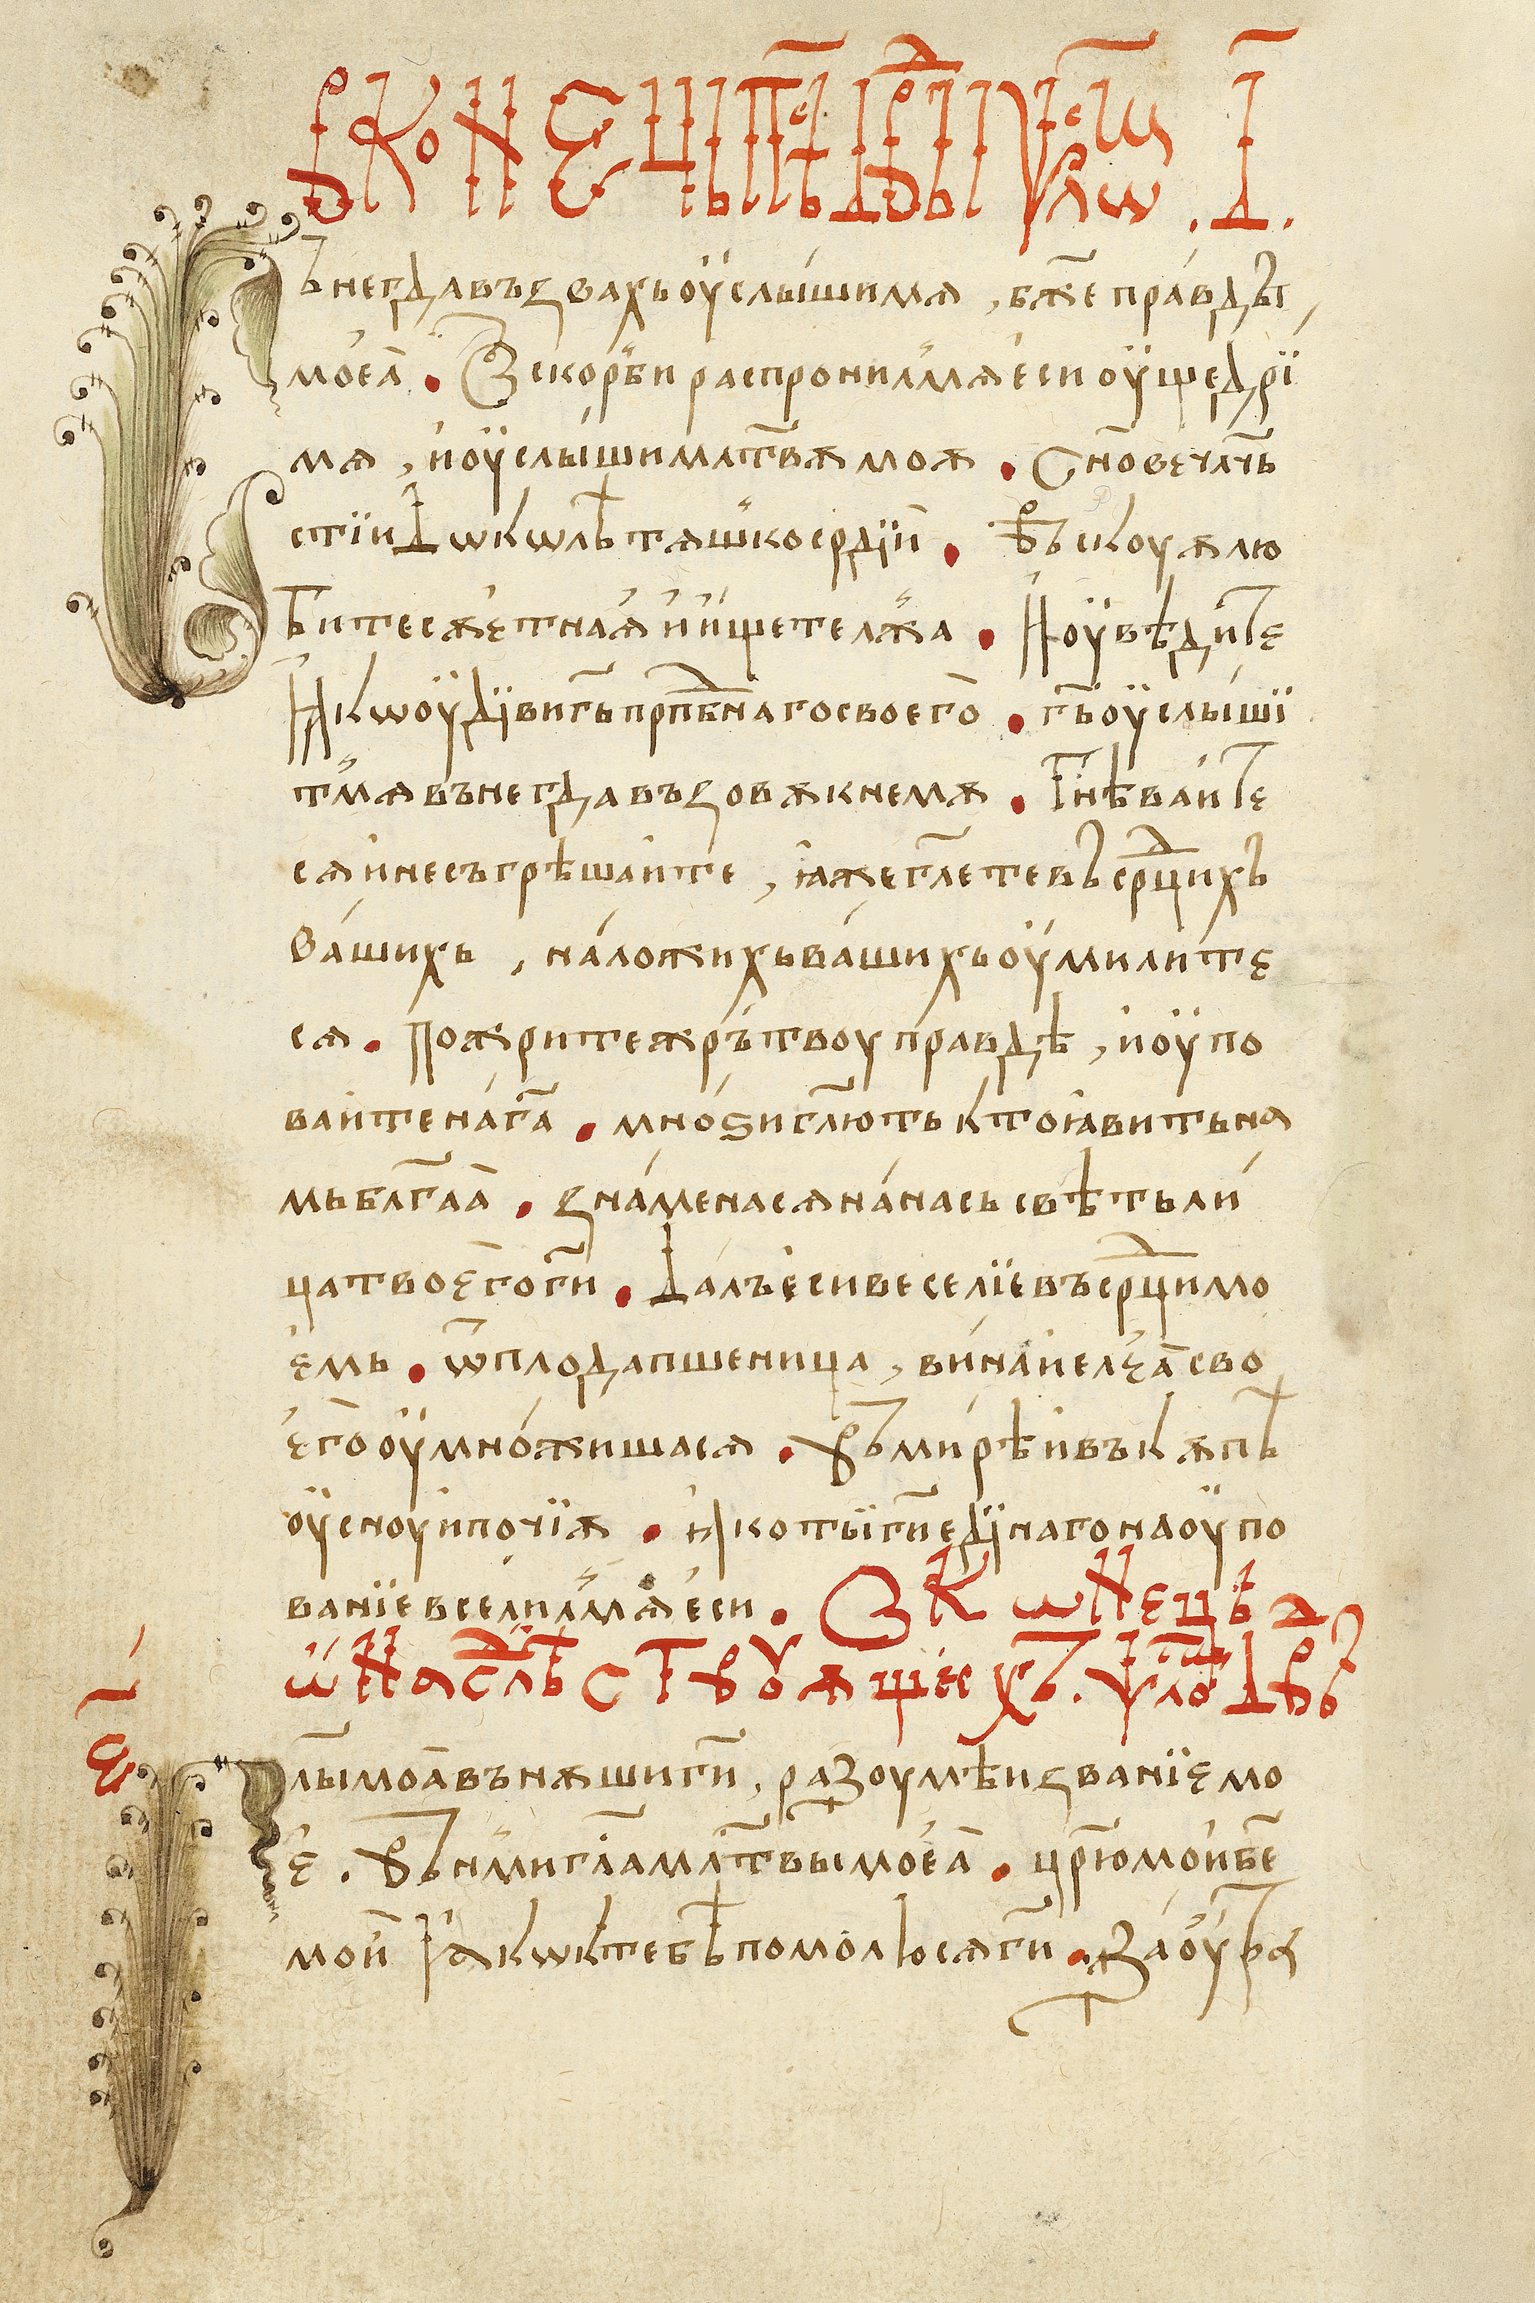 В конець пѣⷭ҇ дв҃ды ѱⷧ҇ѡⷨ҇ . д҃ .
ънегда въꙁвахь оуслышимѧ , бж҃е правды
моеа҆ · Ꙁ скорби распронилмѧ еси оущедри
мѧ , и оуслыши млт҃вѫ моѫ · Сн҃ове чл҃чь
стїи докѡлѣ тѧшкосрдїи · Въскоуѫ лю
бите сꙋетнаа и ищете лжа · И оувѣдите
ꙗкѡ оудиви гь҃ прпб҃наго своего · гь҃ оуслыши
т мѧ вънегда въꙁовѫ к немꙋ · Гнѣваите
сѧ и не съгрѣшаите , ꙗже гл҃ете въ срдц҃ихъ
вашихь , на ложихь вашихь оумилите
сѧ · Пожрите жрътвоу правдѣ , и оупо
ваите на га҃ · мноѕи гл҃ють кто ꙗвить на
мь блг҃аа · ꙁнаменасѧ на нась свѣть ли
ца твоего ги҃ · Далъ еси веселїе въ срдц҃и мо
емь · ѿ плода пшеница , вина и елеа сво
его оумножишасѧ · Въ мирѣ и въкꙋпѣ
оусноу и почїѫ · ꙗко ты ги҃ единаго на оупо
ванїе вселилмѧ еси · Ꙁ Кѡнець
ѡ наслѣствоуѫщихъ . ѱлѡⷨ҇ дв҃въ
е҃
лы моа вънꙋши ги҃ , раꙁоумѣи ꙁванїе мо
е . Вънми гла҃ мл҃твы моеа · цр҃ю мои и бе҃
мои ꙗкѡ к тебѣ помолюсѧ ги҃ · Ꙁаоутра